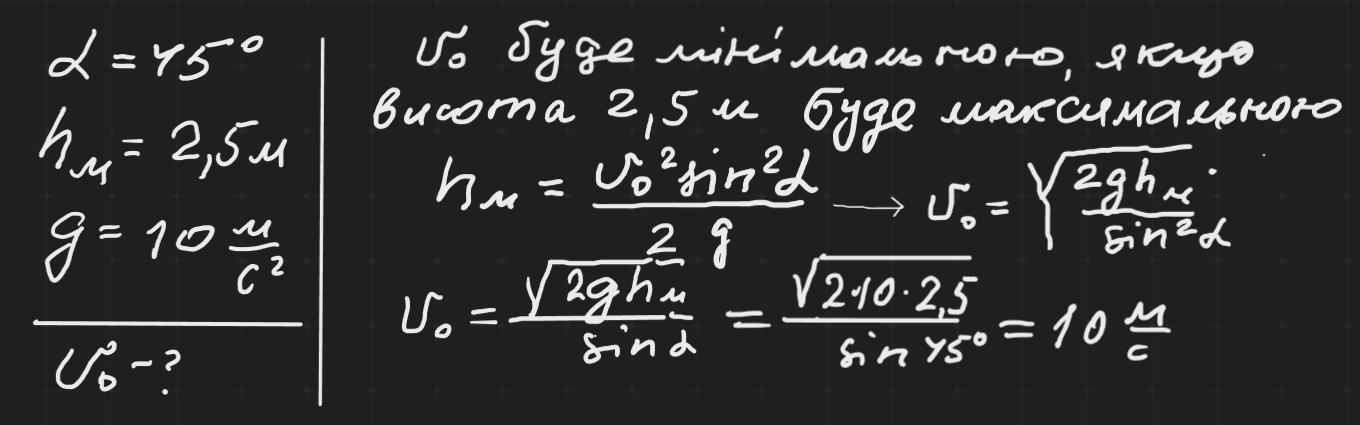 α = 45°
hм = 2,5м
g = 10 м/с²
υ₀ - ?
υ₀ буде мінімальною, якщо
висота 2,5 м буде максимальною
hм = υ₀² sin²α / 2g → υ₀ = √(2ghм / sin²α)
υ₀ = √(2ghм) / sin α = √(2·10·2,5) / sin 45° = 10 м/с